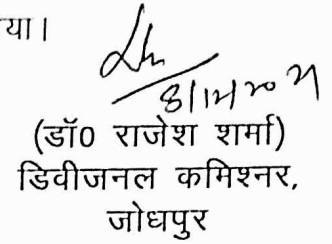 या।
8/11/2021
(डॉ0 राजेश शर्मा)
डिवीजनल कमिश्नर,
जोधपुर